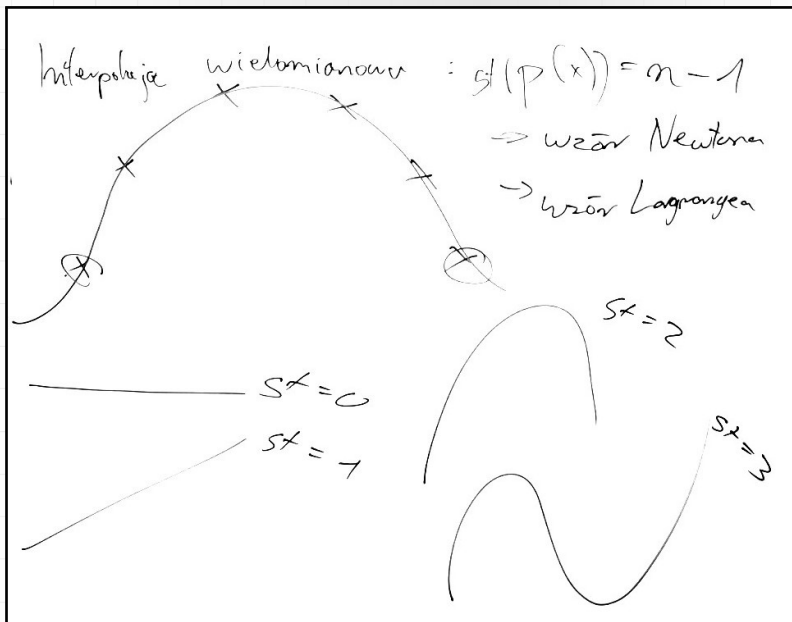 Interpolacja wielomianowa : st(p(x)) = n - 1
-> wzór Newtona
-> wzór Lagrangea
st = 2
st = 0
st = 1
st = 3